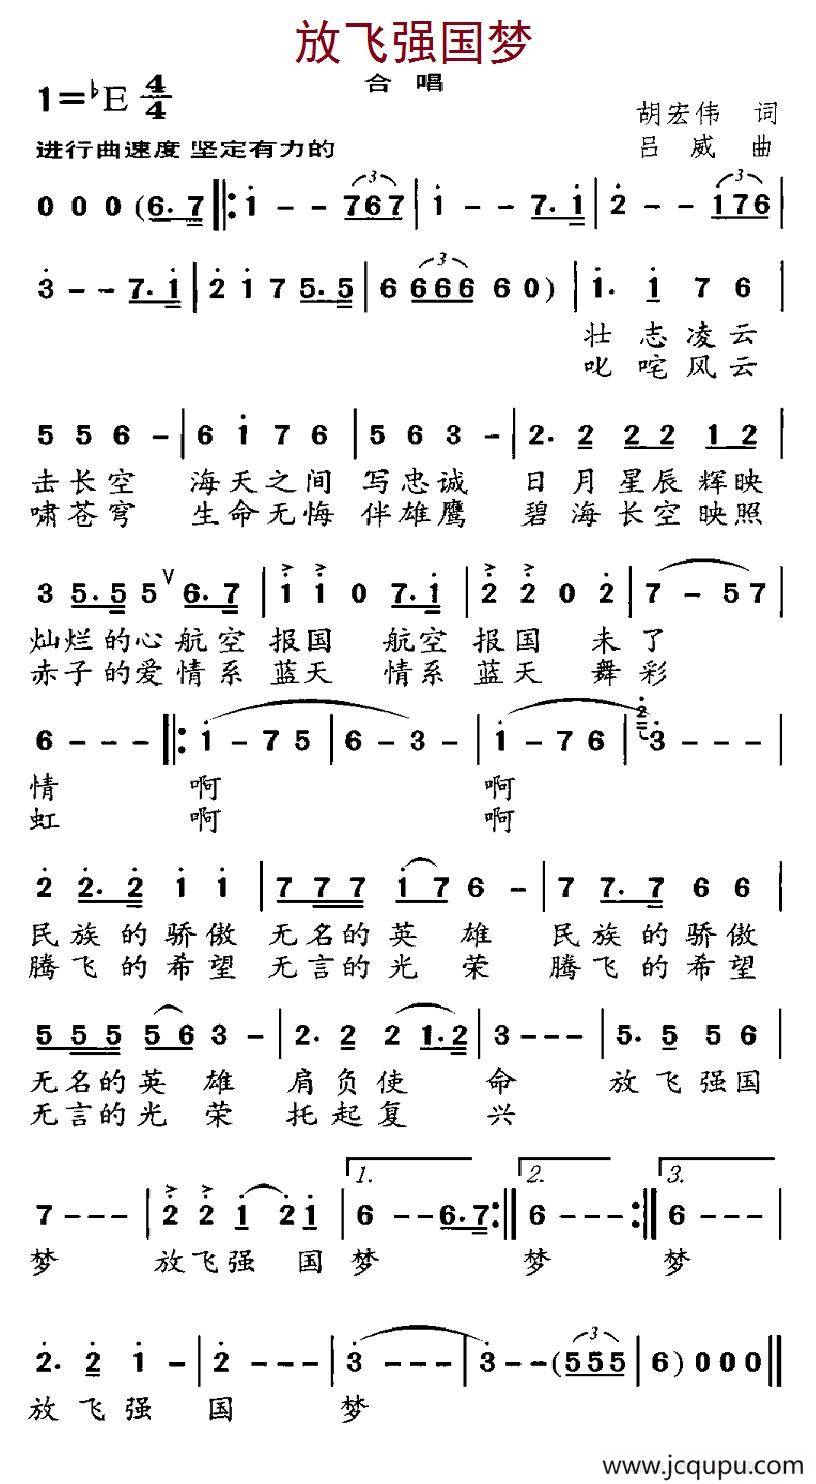 放飞强国梦
合 唱
1=♭E 4/4
胡宏伟 词
进行曲速度 坚定有力的
吕 威 曲
0 0 0 (6. 7 ‖: 1 - - 767 | 1 - - 7. 1 | 2 - - 176 |
3 - - 7. 1 | 2 1 7 5. 5 | 6 666 6 0) | 1. 1 7 6 |
壮 志 凌 云
叱 咤 风 云
5 5 6 - | 6 1 7 6 | 5 6 3 - | 2. 2 2 2 1 2 |
击 长 空 海 天 之 间 写 忠 诚 日 月 星 辰 辉 映
啸 苍 穹 生 命 无 悔 伴 雄 鹰 碧 海 长 空 映 照
3 5. 5 5 ∨ 6. 7 | 1 1 0 7. 1 | 2 2 0 2 | 7 - 5 7 |
灿 烂 的 心 航 空 报 国 航 空 报 国 未 了
赤 子 的 爱 情 系 蓝 天 情 系 蓝 天 舞 彩
6 - - - ‖: 1 - 7 5 | 6 - 3 - | 1 - 7 6 | 2 3 - - - |
情 啊 啊
虹 啊 啊
2 2. 2 1 1 | 7 7 7 1 7 6 - | 7 7. 7 6 6 |
民 族 的 骄 傲 无 名 的 英 雄 民 族 的 骄 傲
腾 飞 的 希 望 无 言 的 光 荣 腾 飞 的 希 望
5 5 5 5 6 3 - | 2. 2 2 1. 2 | 3 - - - | 5. 5 5 6 |
无 名 的 英 雄 肩 负 使 命 放 飞 强 国
无 言 的 光 荣 托 起 复 兴
1. 2. 3.
7 - - - | 2 2 1 2 1 | 6 - - 6. 7 :‖ 6 - - - :‖ 6 - - - |
梦 放 飞 强 国 梦 梦 梦
2. 2 1 - | 2 - - - | 3 - - - | 3 - - (555 | 6) 0 0 0 ‖
放 飞 强 国 梦
www.jcqupu.com